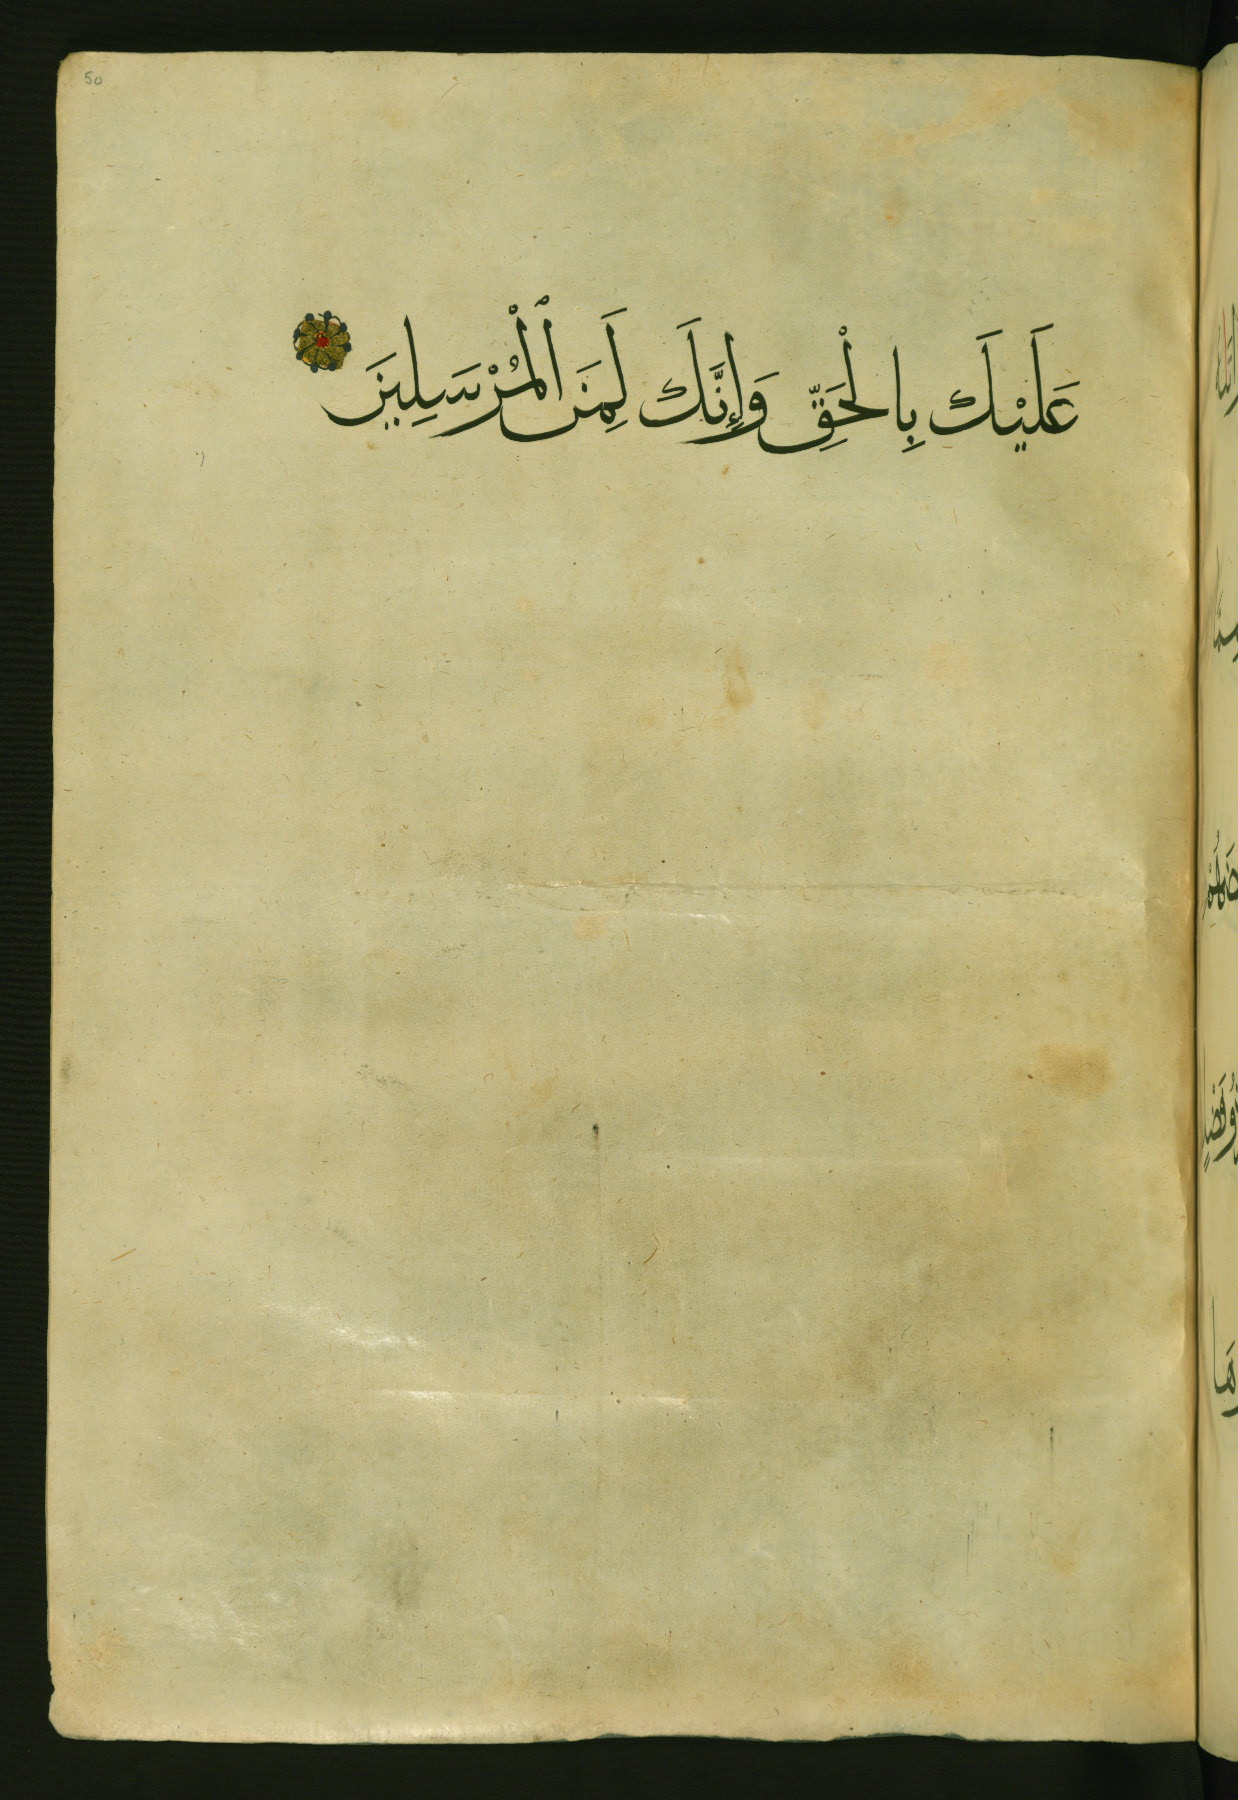 50
عَلَيْكَ بِالْحَقِّ وَإِنَّكَ لَمِنَ ٱلْمُرْسَلِينَ